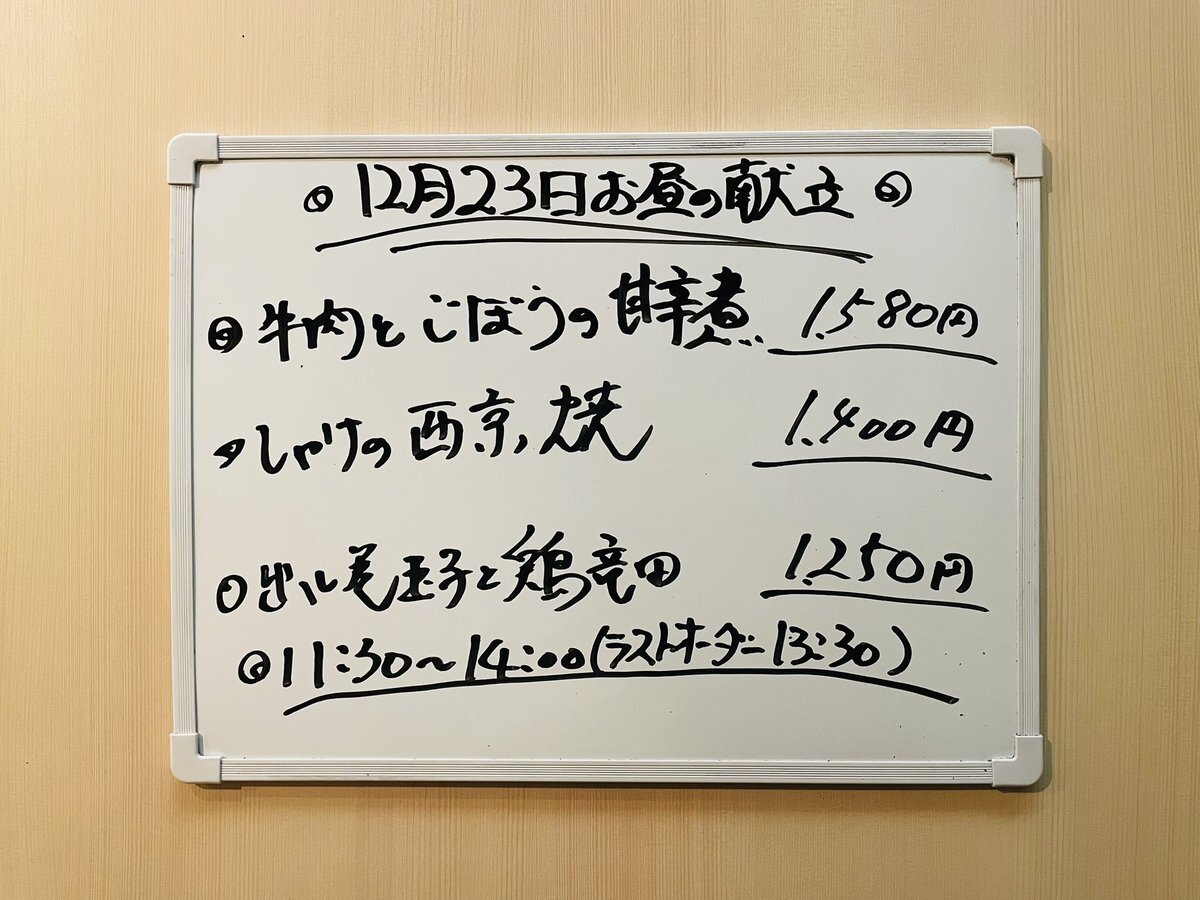 12月23日お昼の献立
牛肉とごぼうの甘辛煮 1.580円
しゃけの西京焼 1.400円
出し巻玉子と鶏竜田 1.250円
11:30〜14:00(ラストオーダー13:30)